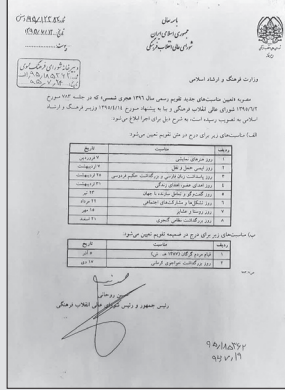 باسمه تعالی
جمهوری اسلامی ایران
شورای عالی انقلاب فرهنگی
وزارت فرهنگ و ارشاد اسلامی
مصوبه «تعیین مناسبت‌های جدید تقویم رسمی سال ۱۳۹۶ هجری شمسی» که در جلسه ۷۸۳ مورخ
۱۳۹۵/۶/۲ شورای عالی انقلاب فرهنگی و بنا به پیشنهاد مورخ ۱۳۹۵/۴/۱۴ وزیر فرهنگ و ارشاد
اسلامی به تصویب رسیده است، به شرح ذیل برای اجرا ابلاغ می‌شود:
الف) مناسبت‌های زیر برای درج در متن تقویم تعیین می‌شود:
ردیف مناسبت تاریخ
۱ روز هنرهای نمایشی ۷ فروردین
۲ روز ایمنی حمل و نقل ۷ اردیبهشت
۳ روز پاسداشت زبان فارسی و بزرگداشت حکیم فردوسی ۲۵ اردیبهشت
۴ روز اهدای عضو، اهدای زندگی ۳۱ اردیبهشت
۵ روز گفت‌وگو و تعامل سازنده با جهان ۲۳ تیر
۶ روز تشکل‌ها و مشارکت‌های اجتماعی ۲۲ مرداد
۷ روز روستا و عشایر ۱۵ مهر
۸ روز بزرگداشت نظامی گنجوی ۲۱ اسفند
ب) مناسبت‌های زیر برای درج در ضمیمه تقویم تعیین می‌شود:
ردیف مناسبت تاریخ
۱ قیام مردم گرگان (۱۳۵۷ هـ. ش) ۵ آذر
۲ روز بزرگداشت خواجوی کرمانی ۱۷ دی
حسن روحانی
رئیس جمهور و رئیس شورای عالی انقلاب فرهنگی